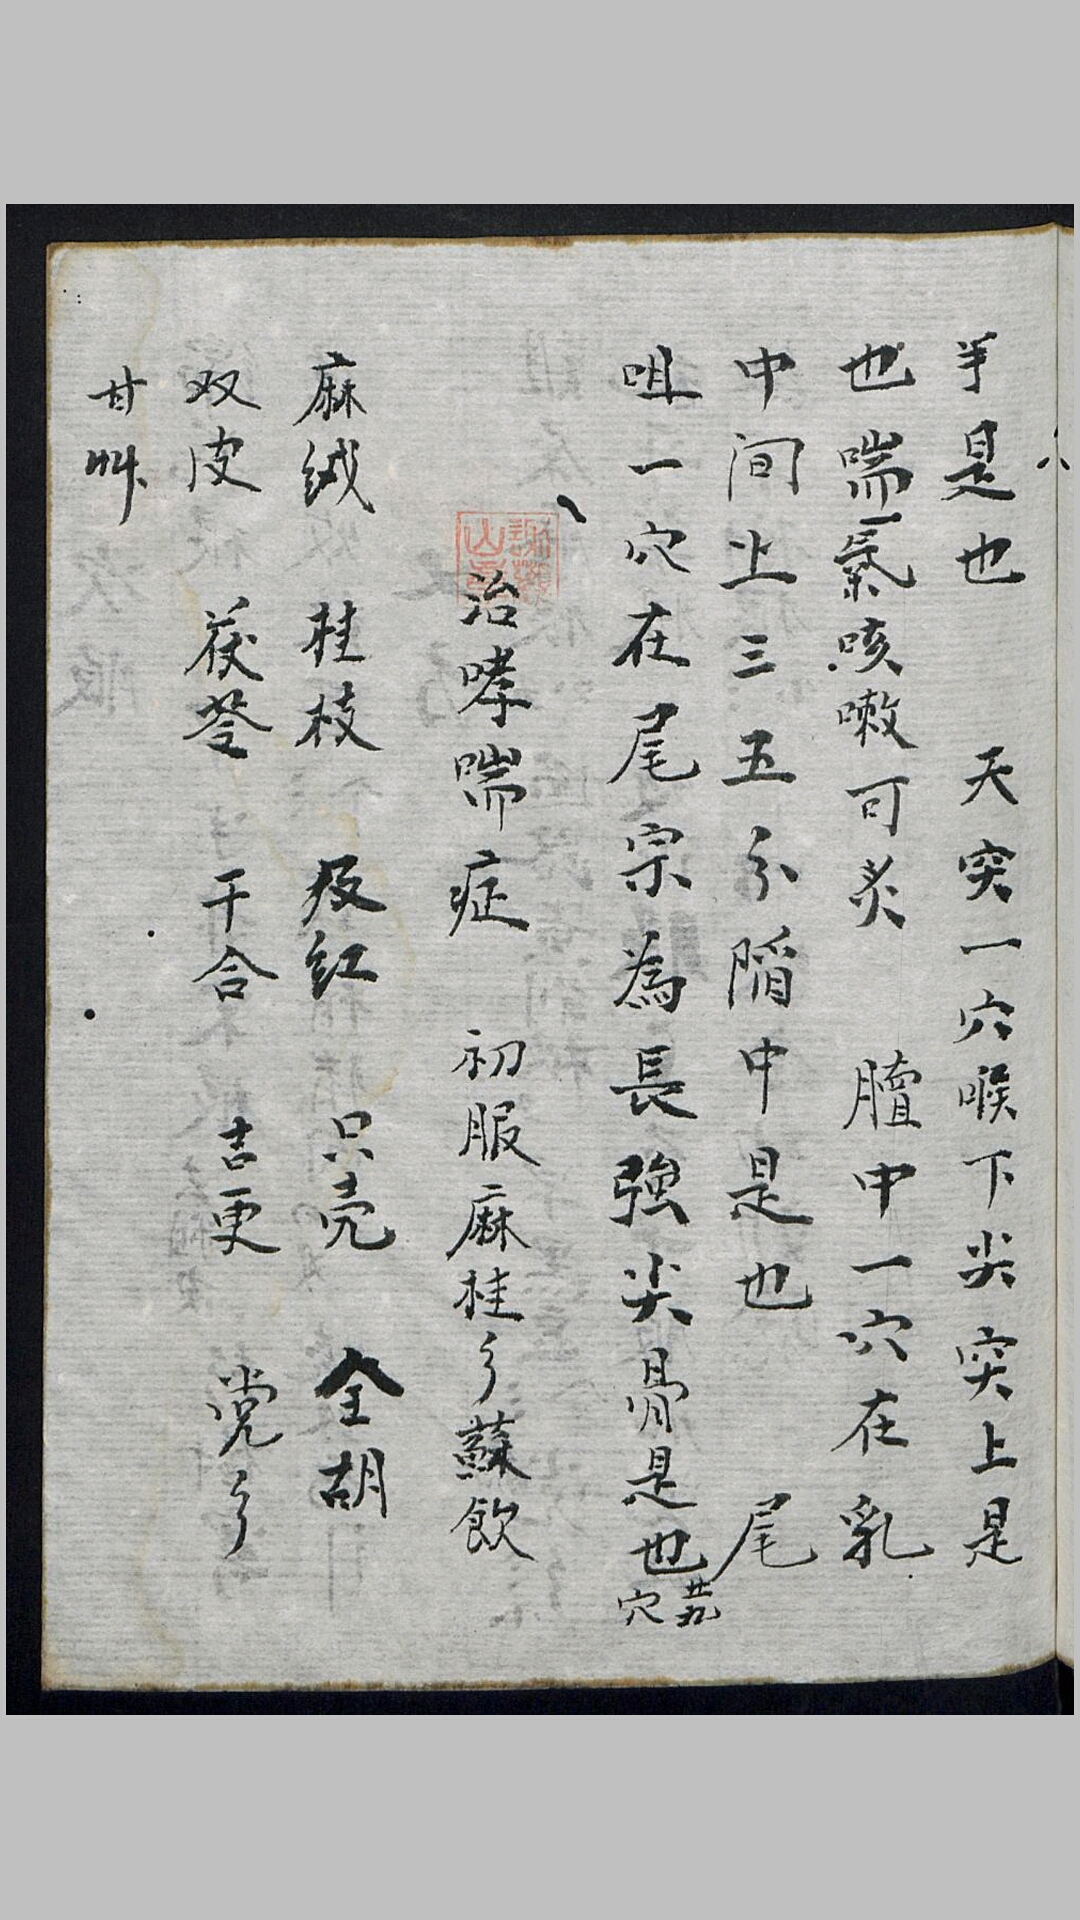 半是也 天突一穴喉下尖突上是
也喘氣咳嗽可炙 膻中一穴在乳
中间上三五分陷中是也 尾
咀一穴在尾宗為長強尖骨是也 廿九穴
治哮喘症 初服麻桂彡蘇飲
麻绒 桂枝 杈红 只壳 全胡
双皮 茯苓 干合 吉更 党彡
甘艸